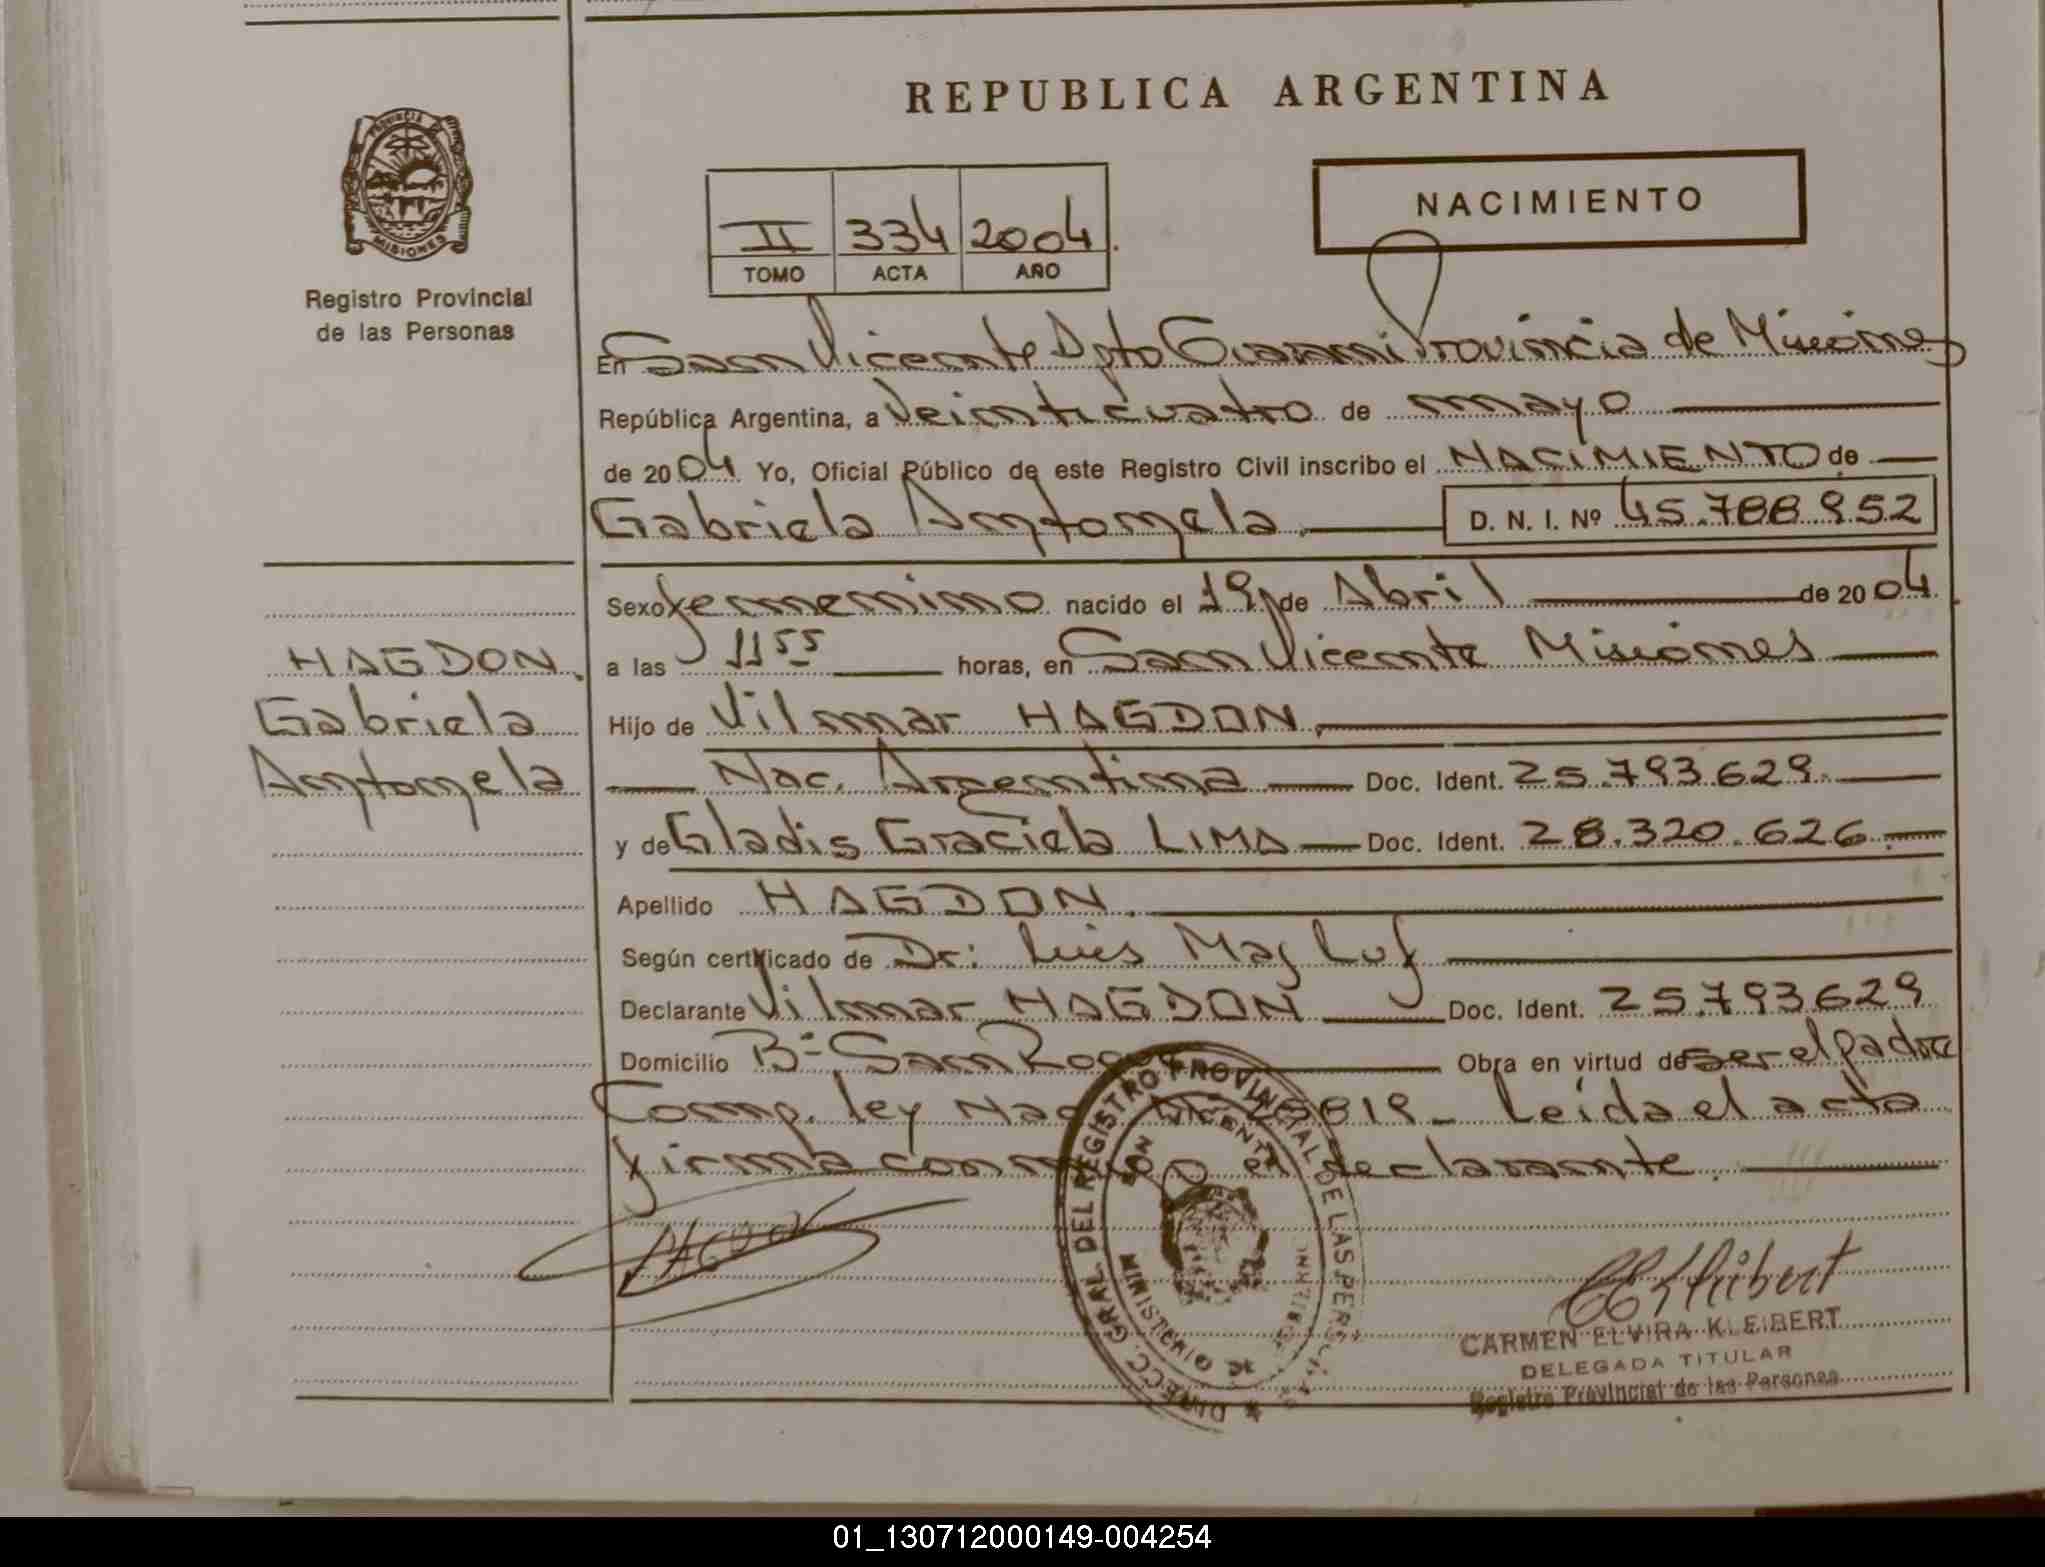 REPUBLICA ARGENTINA
PROVINCIA DE
MISIONES
Registro Provincial
de las Personas
NACIMIENTO
II 334 2004
TOMO ACTA AÑO
En San Vicente Dpto Guarani Provincia de Misiones
República Argentina, a Veinticuatro de mayo
de 2004 Yo, Oficial Público de este Registro Civil inscribo el NACIMIENTO de
Gabriela Antonela D. N. I. Nº 45.788.952
Sexo femenino nacido el 19 de Abril de 2004
a las 1155 horas, en San Vicente Misiones
HAGDON
Gabriela
Antonela
Hijo de Vilmar HAGDON
Nac. Argentina Doc. Ident. 25.793.629
y de Gladis Graciela LIMA Doc. Ident. 28.320.626
Apellido HAGDON
Según certificado de Dr: Luis Maj Luf
Declarante Vilmar HAGDON Doc. Ident. 25.793629
Domicilio Bº San Roque Obra en virtud de ser el padre
Comp. ley Nac 25819 - Leída el acta
firma conmigo el declarante.
HAGDON
DIRECC. GRAL. DEL REGISTRO PROVINCIAL DE LAS PERSONAS
SAN VICENTE
MINISTERIO DE
CARMEN ELVIRA KLEIBERT
DELEGADA TITULAR
Registro Provincial de las Personas
01_130712000149-004254